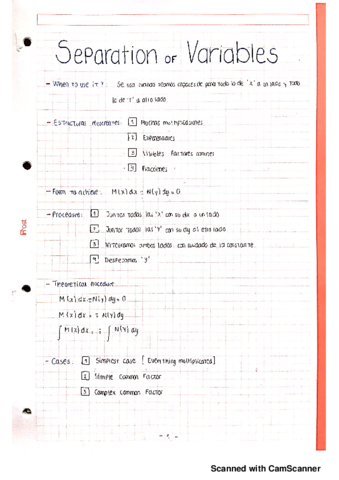 Separation of Variables
- When to use it? : Se usa cuando seamos capaces de pasar todo lo de "x" a un lado y todo
lo de "y" a otro lado.
- Estructuras recurrentes: 1 Muchas multiplicaciones
2 Exponenciales
3 Visibles Factores comunes
4 Fracciones
- Form to achieve: M(x)dx ± N(y)dy = 0
- Procedure: 1 Juntar todas las "X" con su dx a un lado.
2 Juntar todas las "Y" con su dy al otro lado.
3 Integramos ambos lados, con cuidado de la constante.
4 Despejamos "Y"
- Theoretical procedure
M(x)dx ± N(y)dy = 0
M(x)dx = ± N(y)dy
∫ M(x)dx = ± ∫ N(y)dy
- Cases: 1 Simplest case [Everything multiplicated]
2 Simple Common Factor
3 Complex Common Factor
- 1 -
Scanned with CamScanner